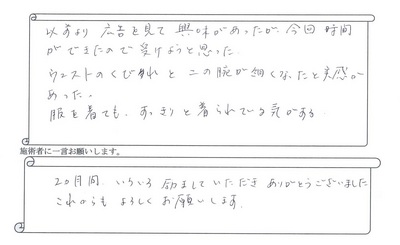 以前より 広告を見て 興味があったが、今回 時間
ができたので 受けようと思った。
ウエストのくびれ と 二の腕が細くなったと実感が
あった。
服を着ても、すっきりと着られている気がする
施術者に一言お願いします。
2ヶ月間、いろいろ励ましていただき ありがとうございました
これからも よろしく お願いします。